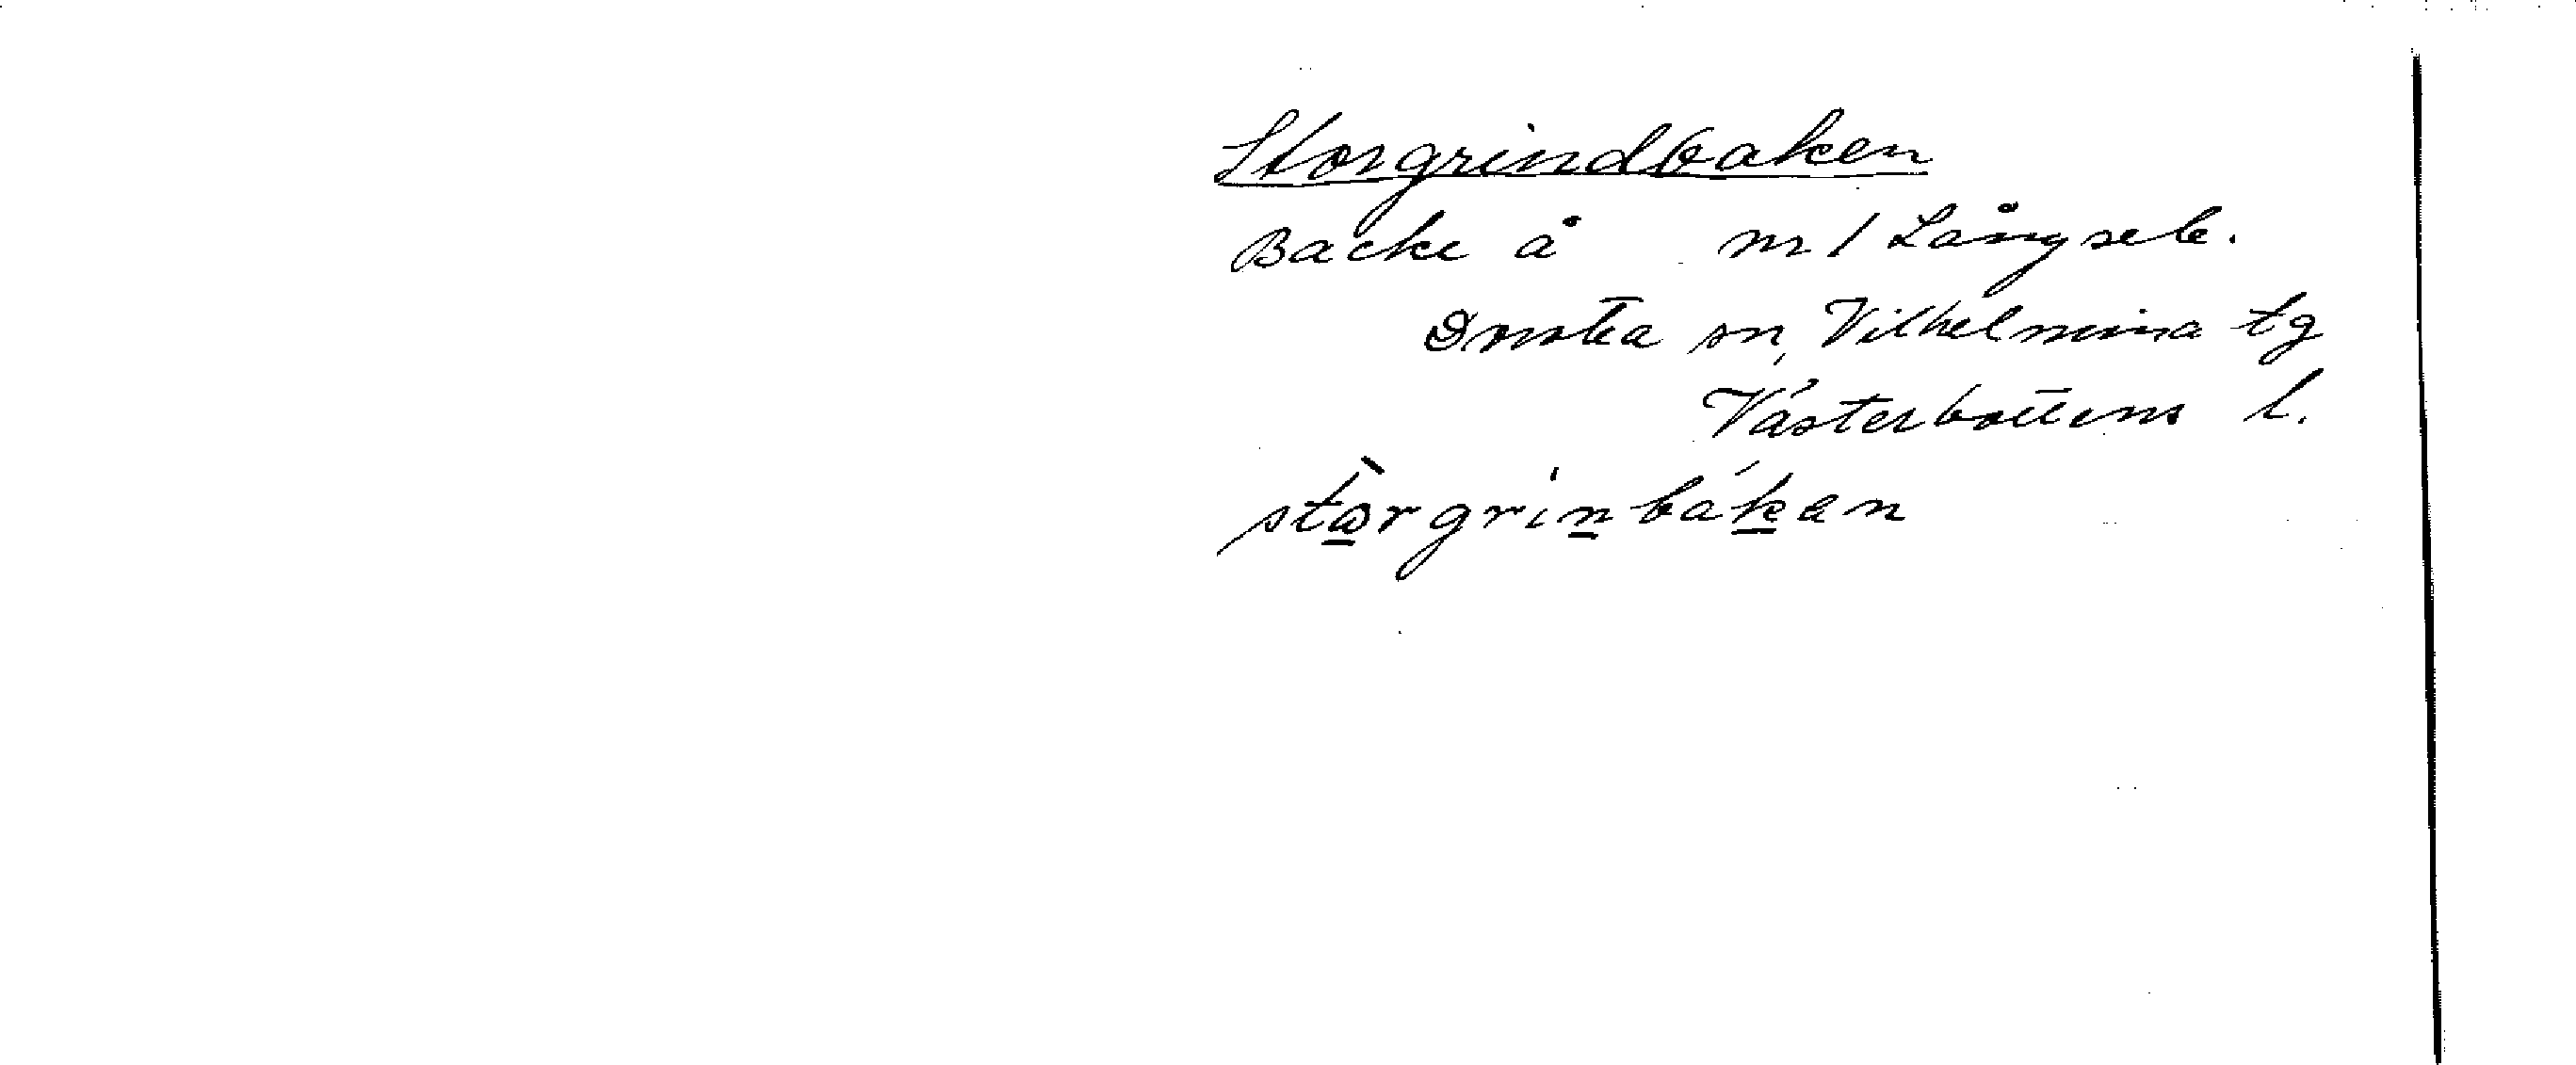 Storgrindbaken
Backe å nr 1 Långsele.
Dorotea sn, Vilhelmina tg
Västerbottens l.
stor̀grinbákan